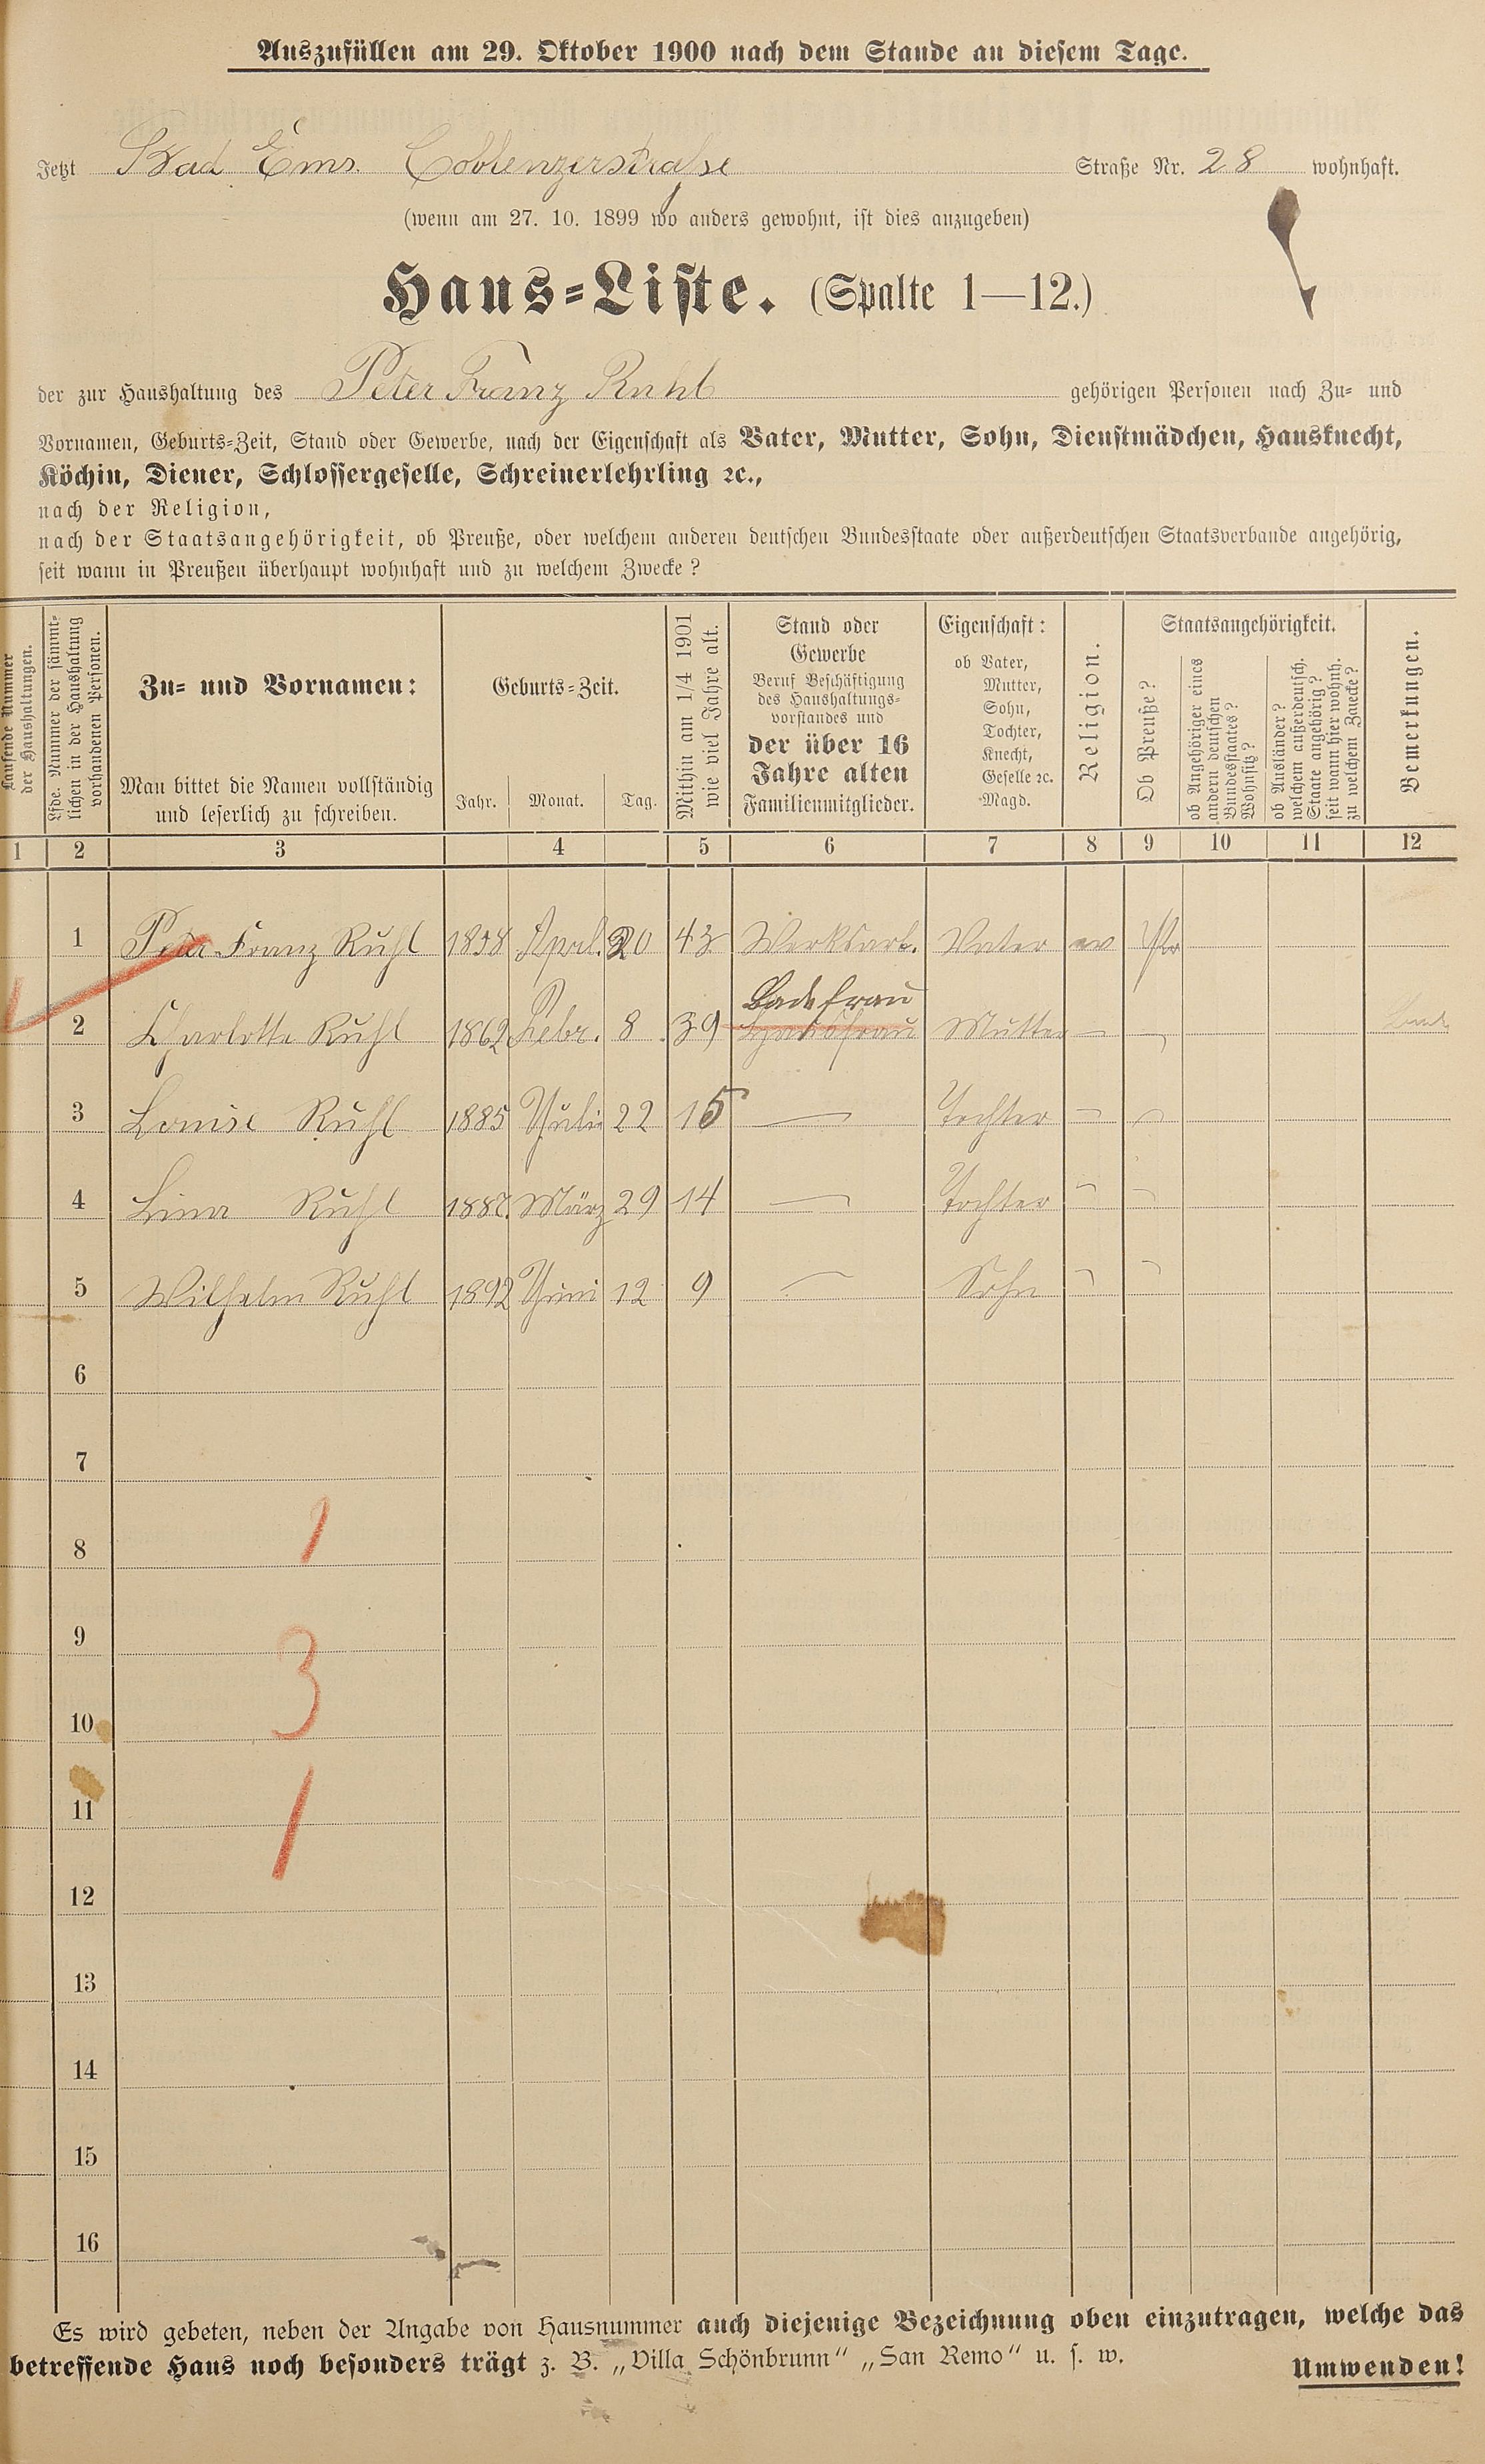 Auszufüllen am 29. Oktober 1900 nach dem Stande an diesem Tage.
Jetzt Bad Ems. Coblenzerstraße Straße Nr. 28 wohnhaft.
(wenn am 27. 10. 1899 wo anders gewohnt, ist dies anzugeben)
Haus-Liste. (Spalte 1—12.)
der zur Haushaltung des Peter Franz Ruhl gehörigen Personen nach Zu- und
Vornamen, Geburts-Zeit, Stand oder Gewerbe, nach der Eigenschaft als Vater, Mutter, Sohn, Dienstmädchen, Hausknecht,
Köchin, Diener, Schlossergeselle, Schreinerlehrling ꝛc.,
nach der Religion,
nach der Staatsangehörigkeit, ob Preuße, oder welchem anderen deutschen Bundesstaate oder außerdeutschen Staatsverbande angehörig,
seit wann in Preußen überhaupt wohnhaft und zu welchem Zwecke?
Laufende Nummer
der Haushaltungen.
Lfde. Nummer der sämmt-
lichen in der Haushaltung
vorhandenen Personen.
Zu- und Vornamen:
Man bittet die Namen vollständig
und leserlich zu schreiben.
Geburts-Zeit.
Jahr. Monat. Tag.
Mithin am 1/4 1901
wie viel Jahre alt.
Stand oder
Gewerbe
Beruf Beschäftigung
des Haushaltungs-
vorstandes und
der über 16
Jahre alten
Familienmitglieder.
Eigenschaft:
ob Vater,
Mutter,
Sohn,
Tochter,
Knecht,
Geselle ꝛc.
Magd.
Religion.
Staatsangehörigkeit.
Ob Preuße?
ob Angehöriger eines
andern deutschen
Bundesstaates?
Wohnsitz?
ob Ausländer?
welchem außerdeutsch.
Staate angehörig?
seit wann hier wohnh.
zu welchem Zwecke?
Bemerkungen.
1 2 3 4 5 6 7 8 9 10 11 12
1 Peter Franz Ruhl 1858 April. 20 43 Werksarb. Vater ev Pr
Badefrau
2 Charlotte Ruhl 1862 Febr. 8 39 Hausfrau Mutter — —
3 Louise Ruhl 1885 Juli 22 15 — Tochter — —
4 Lina Ruhl 1887. März 29 14 — Tochter — —
5 Wilhelm Ruhl 1892 Juni 12 9 — Sohn — —
6
7
8 1
9
3
10
11 1
12
13
14
15
16
Es wird gebeten, neben der Angabe von Hausnummer auch diejenige Bezeichnung oben einzutragen, welche das
betreffende Haus noch besonders trägt z. B. „Villa Schönbrunn“ „San Remo“ u. s. w.
Umwenden!